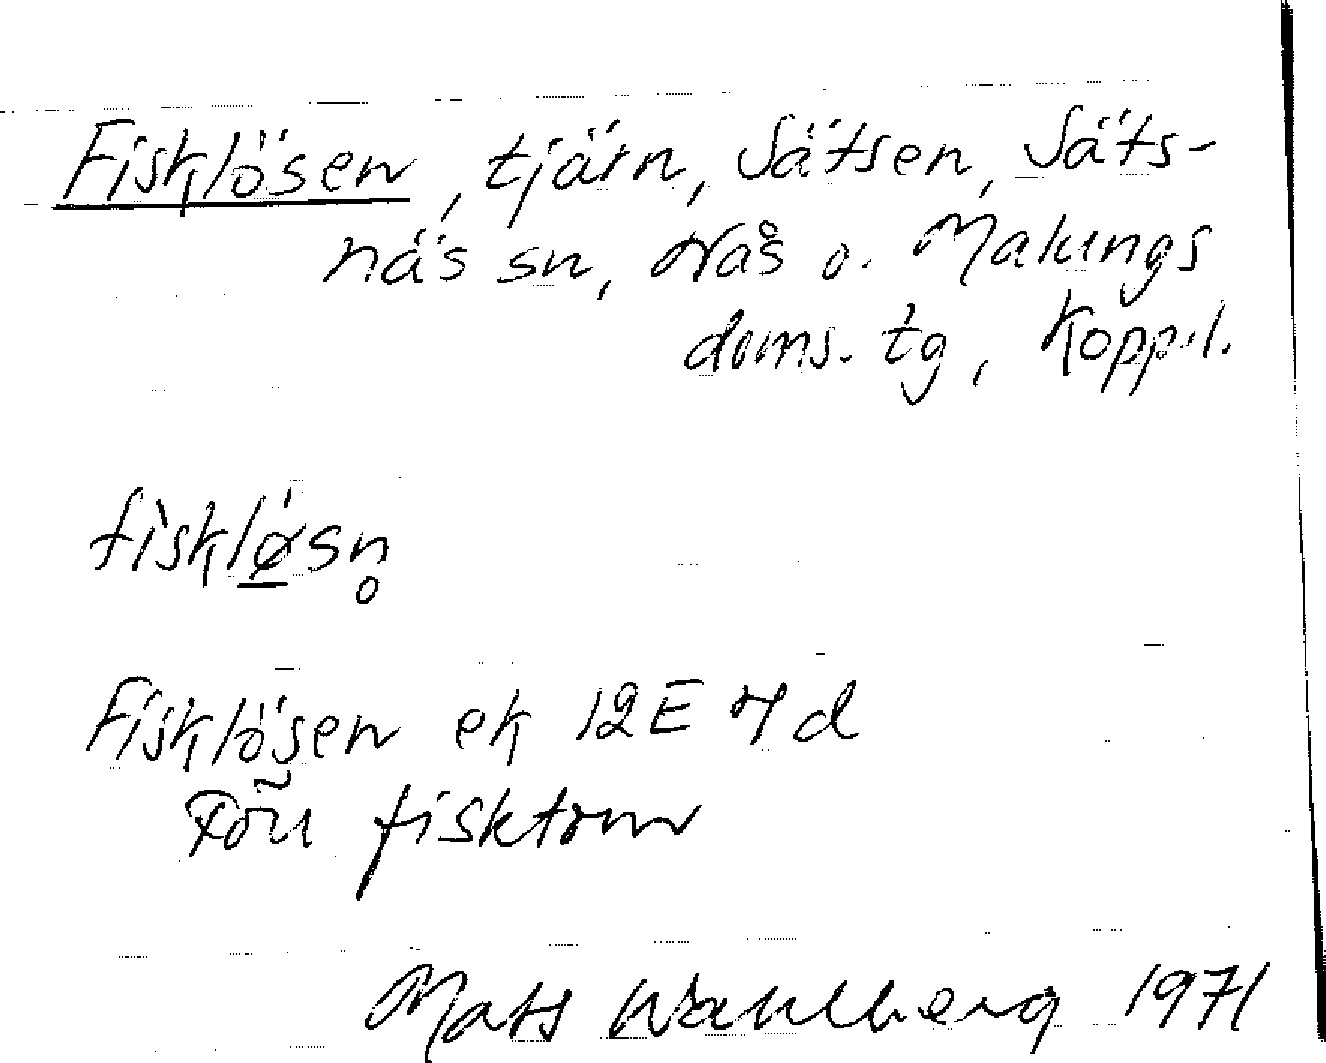 Fisklösen, tjärn, Sätsen, Säts-
näs sn, Nås o. Malungs
doms. tg, Kopp.l.
fìskløsn̥
Fisklösen ek 12E 7d
fisktom
Mats Wahlberg 1971